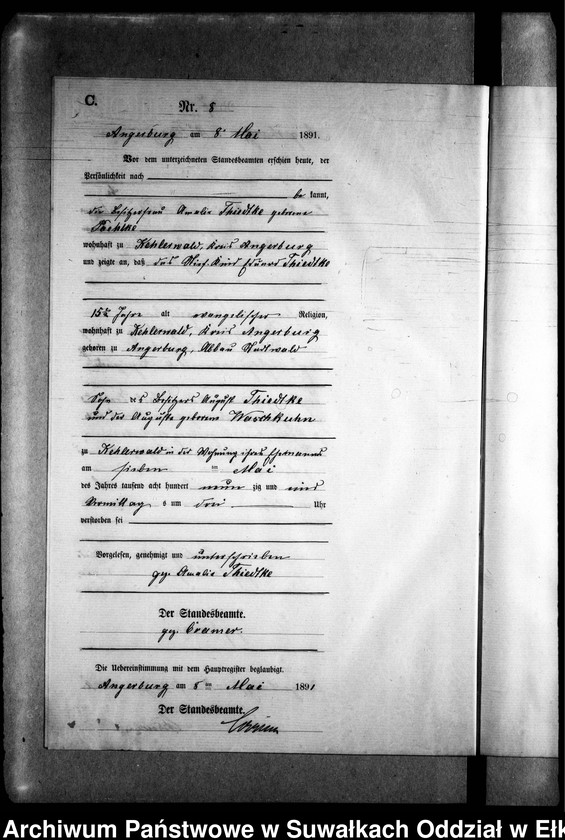 C.
Nr. 8
Angerburg am 8ten Mai 1891.
Vor dem unterzeichneten Standesbeamten erschien heute, der
Persönlichkeit nach
be kannt,
die Besitzerfrau Amalie Thiedtke geborene
wohnhaft zu Kehlerwald, Kreis Angerburg
und zeigte an, daß das Stief-Kind Eduard Thiedtke
15 1/2 Jahre alt evangelischer Religion,
wohnhaft zu Kehlerwald, Kreis Angerburg
geboren zu Angerburg, Abbau Stadtwald
Sohn des Besitzers August Thiedtke
und der Auguste geborene Waschkuhn
zu Kehlerwald in der Wohnung ihres Ehemannes
am sieben ten Mai
des Jahres tausend acht hundert neun zig und eins
Vormittag s um drei Uhr
verstorben sei
Vorgelesen, genehmigt und unterschrieben
gez. Amalie Thiedtke
Der Standesbeamte.
gez. Cramer.
Die Uebereinstimmung mit dem Hauptregister beglaubigt.
Angerburg am 8 ten Mai 1891
Der Standesbeamte.
Archiwum Państwowe w Suwałkach Oddział w Ełk